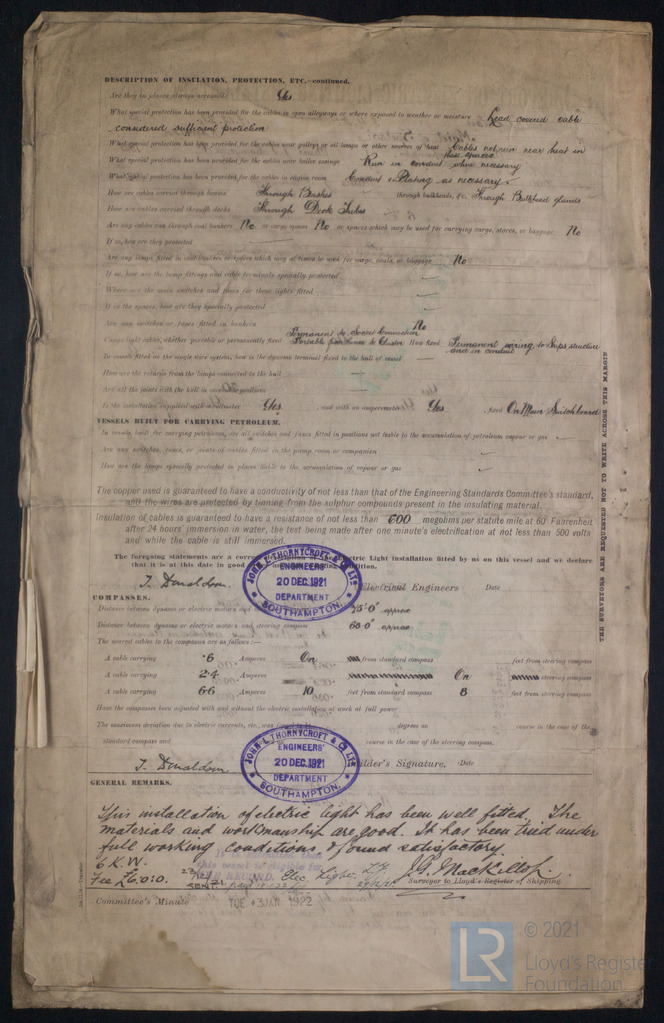 DESCRIPTION OF INSULATION, PROTECTION, ETC.—continued.
Are they in places always accessible Yes
What special protection has been provided for the cables in open alleyways or where exposed to weather or moisture Lead covered cable
considered sufficient protection
What special protection has been provided for the cables near galleys or oil lamps or other sources of heat Cables not run near heat in
has spaces
What special protection has been provided for the cables near boiler casings Run in conduit where necessary
What special protection has been provided for the cables in engine room Conduit or Plating as necessary
How are cables carried through beams Through Bushes through bulkheads, &c. Through Bulkhead glands
How are cables carried through decks Through Deck Tubes
Are any cables run through coal bunkers No or cargo spaces No or spaces which may be used for carrying cargo, stores, or baggage No
If so, how are they protected
Are any lamps fitted in coal bunkers or spaces which may at times be used for cargo, coals, or baggage No
If so, how are the lamp fittings and cable terminals specially protected
Where are the main switches and fuses for these lights fitted
If in the spaces, how are they specially protected
Are any switches or fuses fitted in bunkers No
Permanent to Socket Connection
Cargo light cables, whether portable or permanently fixed Portable from same to Cluster How fixed Permanent wiring to Ships structure
and in conduit
In vessels fitted on the single wire system, how is the dynamo terminal fixed to the hull of vessel
How are the returns from the lamps connected to the hull
Are all the joints with the hull in accessible positions
Is the installation supplied with a voltmeter Yes, and with an amperemeter Yes, fixed On Main Switchboard
VESSELS BUILT FOR CARRYING PETROLEUM.
In vessels built for carrying petroleum, are all switches and fuses fitted in positions not liable to the accumulation of petroleum vapour or gas
Are any switches, fuses, or joints of cables fitted in the pump room or companion
How are the lamps specially protected in places liable to the accumulation of vapour or gas
The copper used is guaranteed to have a conductivity of not less than that of the Engineering Standards Committee's standard,
and the wires are protected by tinning from the sulphur compounds present in the insulating material.
Insulation of cables is guaranteed to have a resistance of not less than 600 megohms per statute mile at 60° Fahrenheit
after 24 hours' immersion in water, the test being made after one minute's electrification at not less than 500 volts
and while the cable is still immersed.
The foregoing statements are a correct description of the Electric Light installation fitted by us on this vessel and we declare
that it is at this date in good order and in safe working condition.
T. Donaldson Electrical Engineers Date
JOHN I. THORNYCROFT & CO LTD
ENGINEERS'
20 DEC. 1921
DEPARTMENT
SOUTHAMPTON.
COMPASSES.
Distance between dynamo or electric motors and standard compass 75'·0" approx
Distance between dynamo or electric motors and steering compass 60·0" approx
The nearest cables to the compasses are as follows:—
A cable carrying ·6 Amperes On feet from standard compass feet from steering compass
A cable carrying 2·4 Amperes On feet from steering compass
A cable carrying 6·6 Amperes 10 feet from standard compass 8 feet from steering compass
Have the compasses been adjusted with and without the electric installation at work at full power
The maximum deviation due to electric currents, etc., was found to be degrees on course in the case of the
standard compass and course in the case of the steering compass.
T. Donaldson Builder's Signature, Date
JOHN I. THORNYCROFT & CO LTD
ENGINEERS'
20 DEC. 1921
DEPARTMENT
SOUTHAMPTON.
GENERAL REMARKS.
This installation of electric light has been well fitted. The
materials and workmanship are good. It has been tried under
full working conditions, & found satisfactory.
6 K.W.
It is submitted that
this vessel is eligible for
THE RECORD. Elec Light.
Fee £6:0:0. J.G. Mackillop.
Surveyor to Lloyd's Register of Shipping.
Committee's Minute TUE. 3 JAN 1922
THE SURVEYORS ARE REQUESTED NOT TO WRITE ACROSS THIS MARGIN
LR
© 2021
Lloyd's Register
Foundation